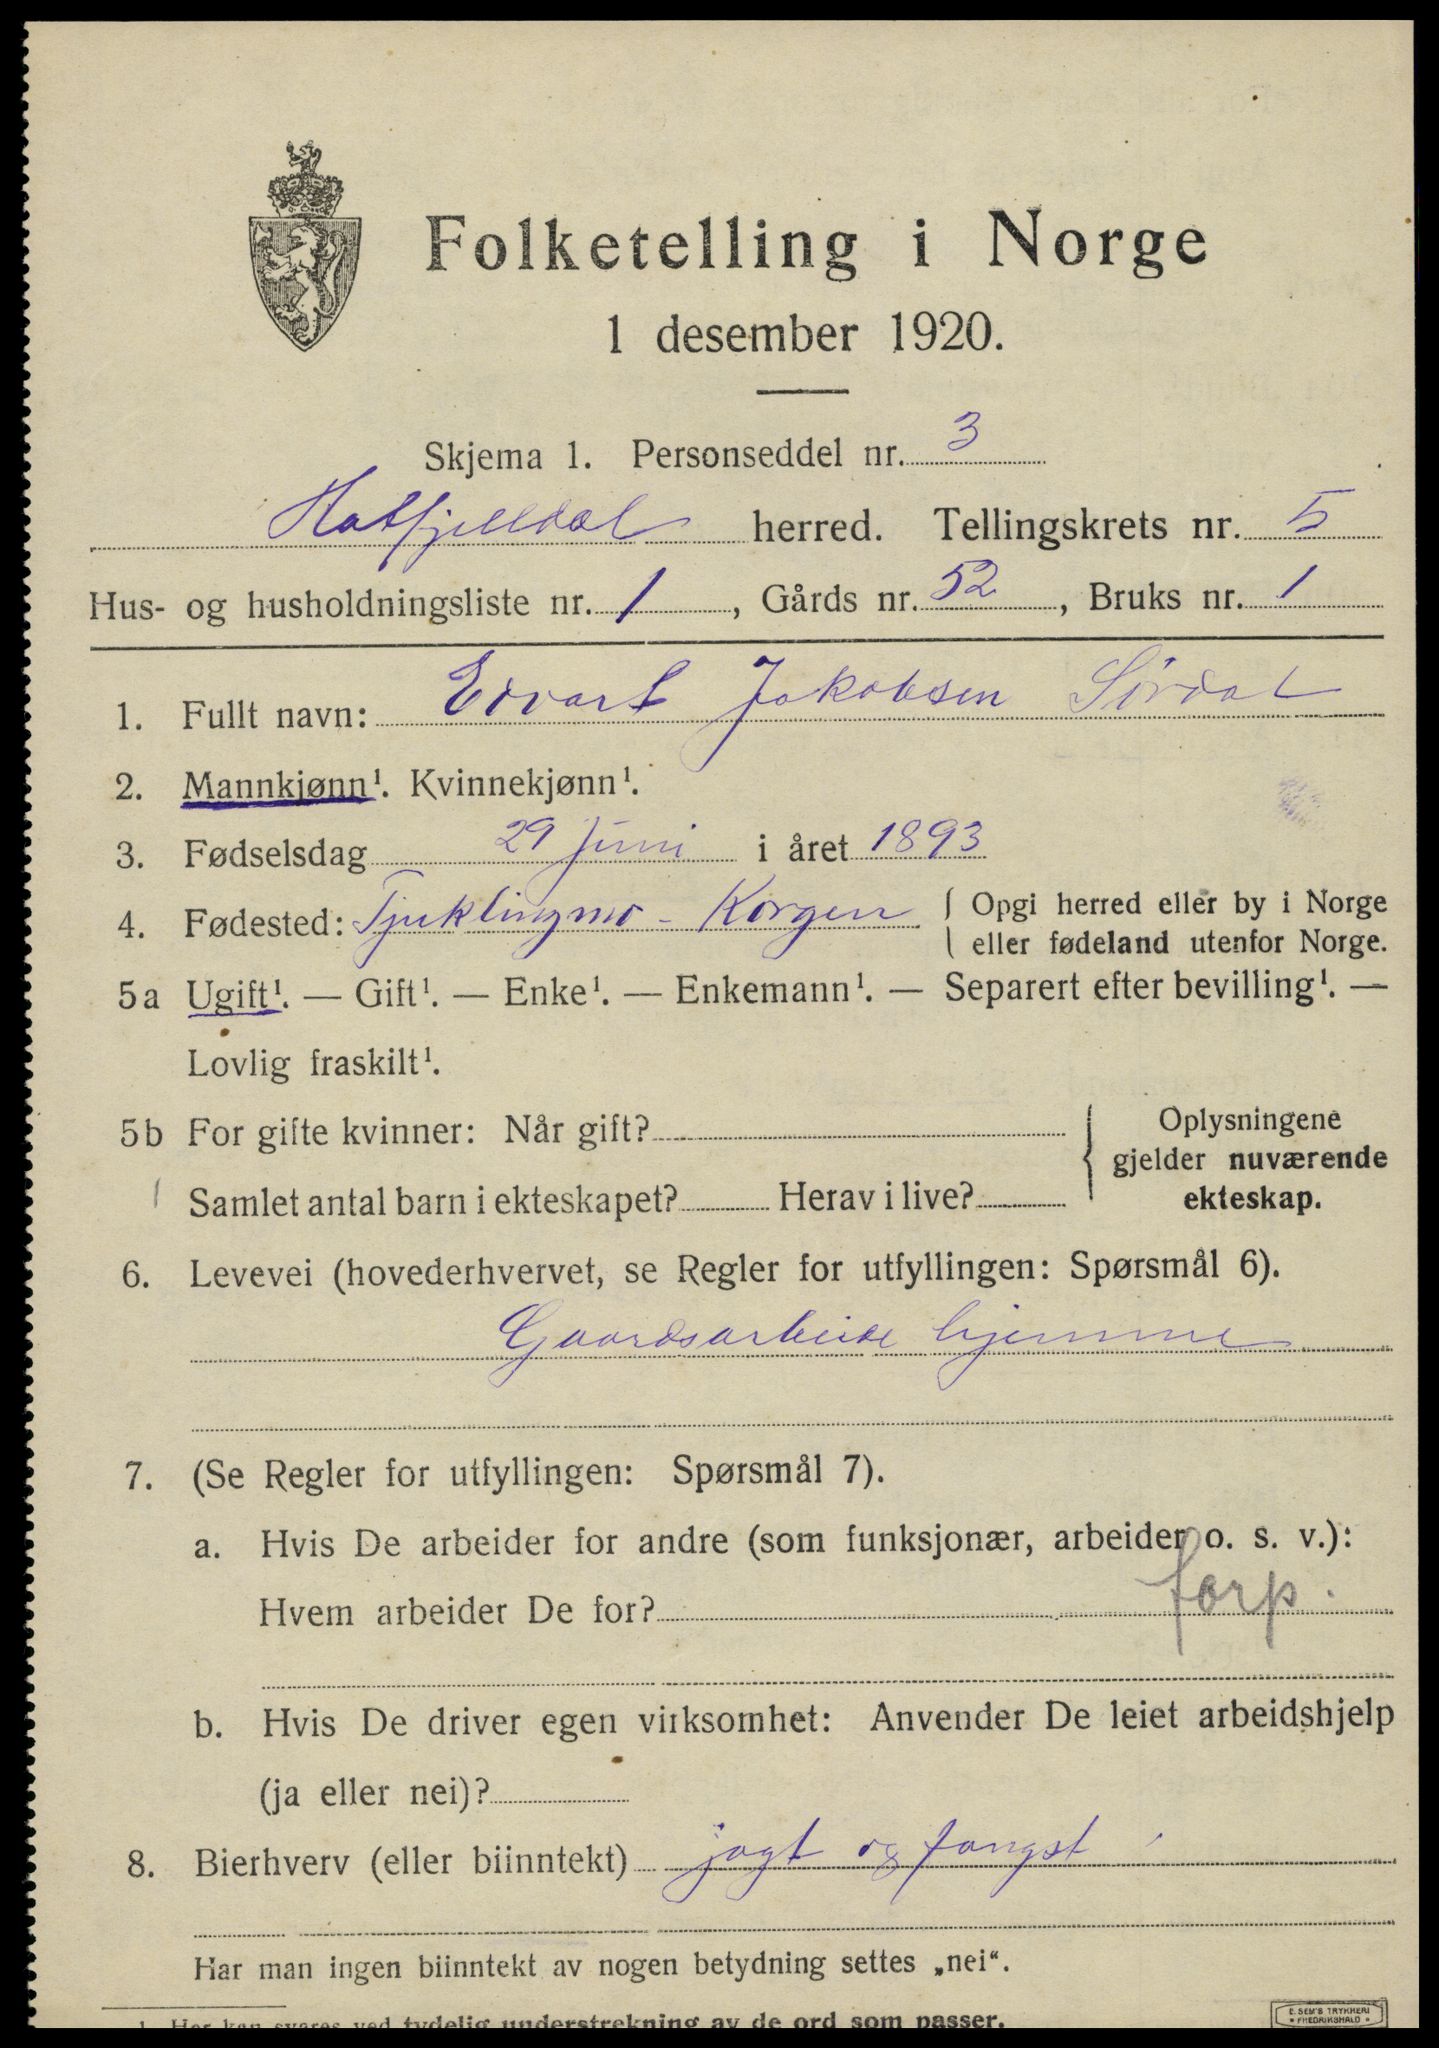 Folketelling i Norge
1 desember 1920.
Skjema 1. Personseddel nr. 3
Hatfjelldal herred. Tellingskrets nr. 5
Hus- og husholdningsliste nr. 1, Gårds nr. 52, Bruks nr. 1
1. Fullt navn: Edvart Jakobsen Sørdal
2. Mannkjønn¹. Kvinnekjønn¹.
3. Fødselsdag 29 Juni i året 1893
4. Fødested: Tjuklingmo - Korgen { Opgi herred eller by i Norge
eller fødeland utenfor Norge.
5a Ugift¹. — Gift¹. — Enke¹. — Enkemann¹. — Separert efter bevilling¹. —
Lovlig fraskilt¹.
5b For gifte kvinner: Når gift?
Samlet antal barn i ekteskapet? Herav i live?
{ Oplysningene
gjelder nuværende
ekteskap.
6. Levevei (hovederhvervet, se Regler for utfyllingen: Spørsmål 6).
Gaardsarbeide hjemme
7. (Se Regler for utfyllingen: Spørsmål 7).
a. Hvis De arbeider for andre (som funksjonær, arbeider o. s. v.):
Hvem arbeider De for? forp.
b. Hvis De driver egen virksomhet: Anvender De leiet arbeidshjelp
(ja eller nei)?
8. Bierhverv (eller biinntekt) jagt og fangst
Har man ingen biinntekt av nogen betydning settes „nei“.
1 Her kan svares ved tydelig understrekning av de ord som passer.
E. SEM'S TRYKKERI
• FREDRIKSHALD •